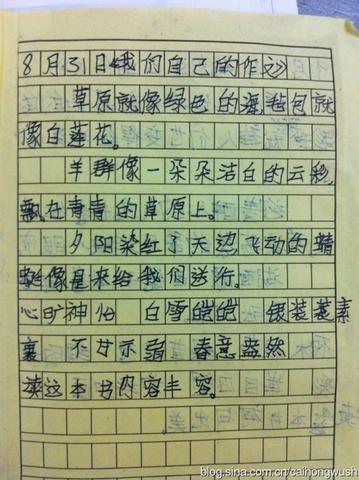 8月31日《我们自己的作文》
草原就像绿色的海,毡包就
像白莲花。
羊群像一朵朵洁白的云彩,
飘在青青的草原上。
夕阳染红了天边,飞动的蜻
蜓像是来给我们送行。
心旷神怡 白雪皑皑 银装素
裹 不甘示弱 春意盎然
读这本书内容丰容。
blog.sina.com.cn/caihongwush